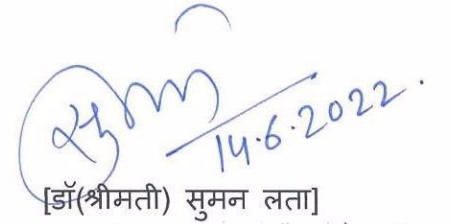 14.6.2022.
[डॉ(श्रीमती) सुमन लता]